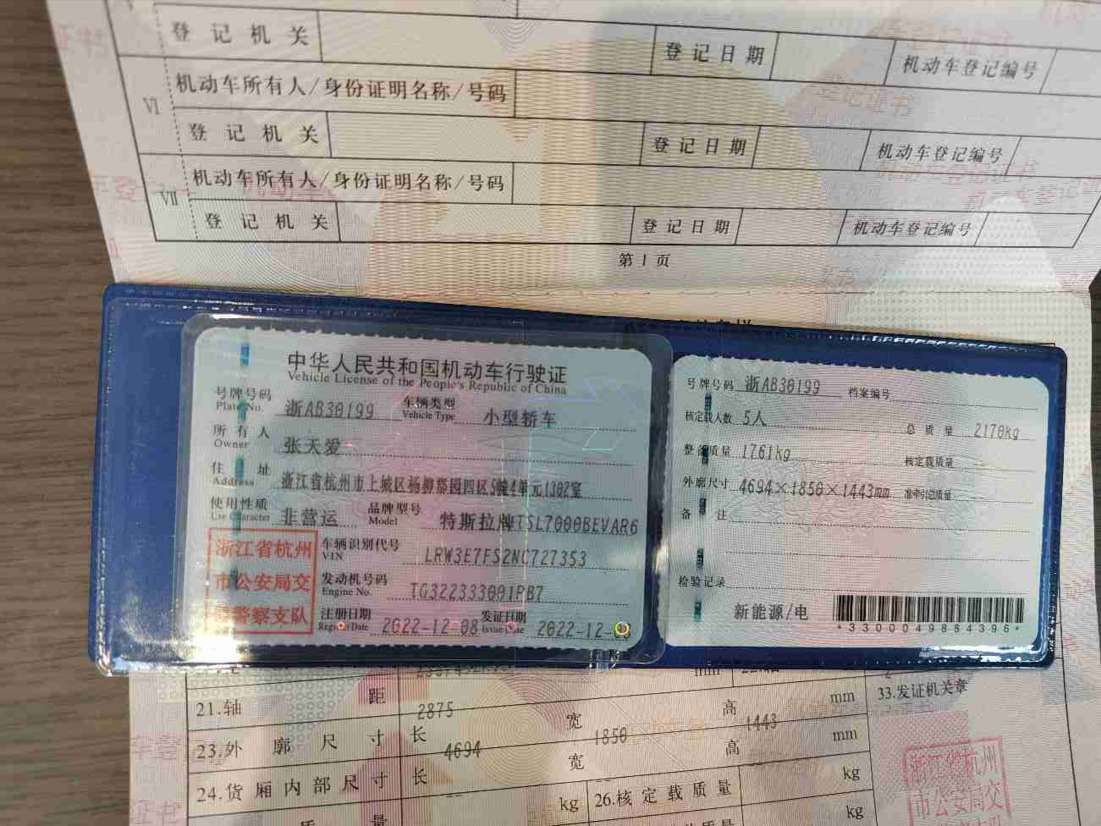 登记机关 登记日期 机动车登记编号
Ⅵ 机动车所有人/身份证明名称/号码
登记机关 登记日期 机动车登记编号
Ⅶ 机动车所有人/身份证明名称/号码
登记机关 登记日期 机动车登记编号
第1页
中华人民共和国机动车行驶证
Vehicle License of the People's Republic of China
号牌号码 浙AB30199 车辆类型 小型轿车
Plate No. Vehicle Type
所有人 张天爱
Owner
住址 浙江省杭州市上城区杨柳郡园四区5幢4单元1302室
Address
使用性质 非营运 品牌型号 特斯拉牌TSL7000BEVAR6
Use Character Model
浙江省杭州
市公安局交
警察支队
车辆识别代号 LRW3E7FS2NC727353
VIN
发动机号码 TG322333001PB7
Engine No.
注册日期 2022-12-08 发证日期 2022-12-
Register Date Issue Date
号牌号码 浙AB30199 档案编号
核定载人数 5人 总质量 2170kg
整备质量 1761kg 核定载质量
外廓尺寸 4694×1850×1443mm 准牵引总质量
备注
检验记录
新能源/电
*3300049864396*
mm
21.轴距 2875 mm 33.发证机关章
23.外廓尺寸 长 4694 宽 1850 高 1443 mm
24.货厢内部尺寸 长 宽 高 mm
kg 26.核定载质量 kg
质量 kg
浙江省杭州
市公安局交